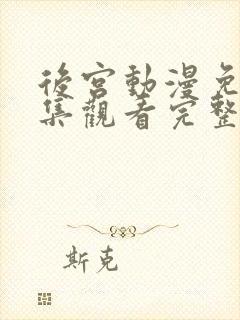 後宮動漫免
集觀看完整
斯克